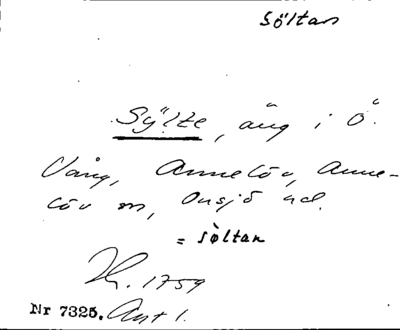 Söltan
Sÿltze, äng i Ö.
Vång, Annelöv, Anne-
löv sn, Onsjö hd.
= söltan
K. 1759
Nr 7325. Akt 1.